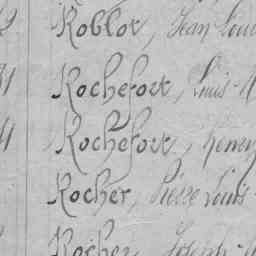 Roblot, Jean Louis
Rochefort, Louis
Rochefort, Henry
Rocher, Pierre Louis
Rocher, Joseph